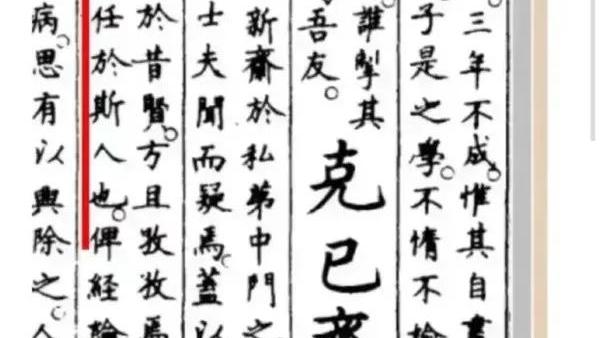 三年不成。惟其自
子是之學。不惰不
誰掣其
吾友。
克已
新齋於私第中門之
士夫聞而疑焉。蓋以
於昔賢。方且孜孜焉
任於斯人也。俾經
病。思有以興除之。